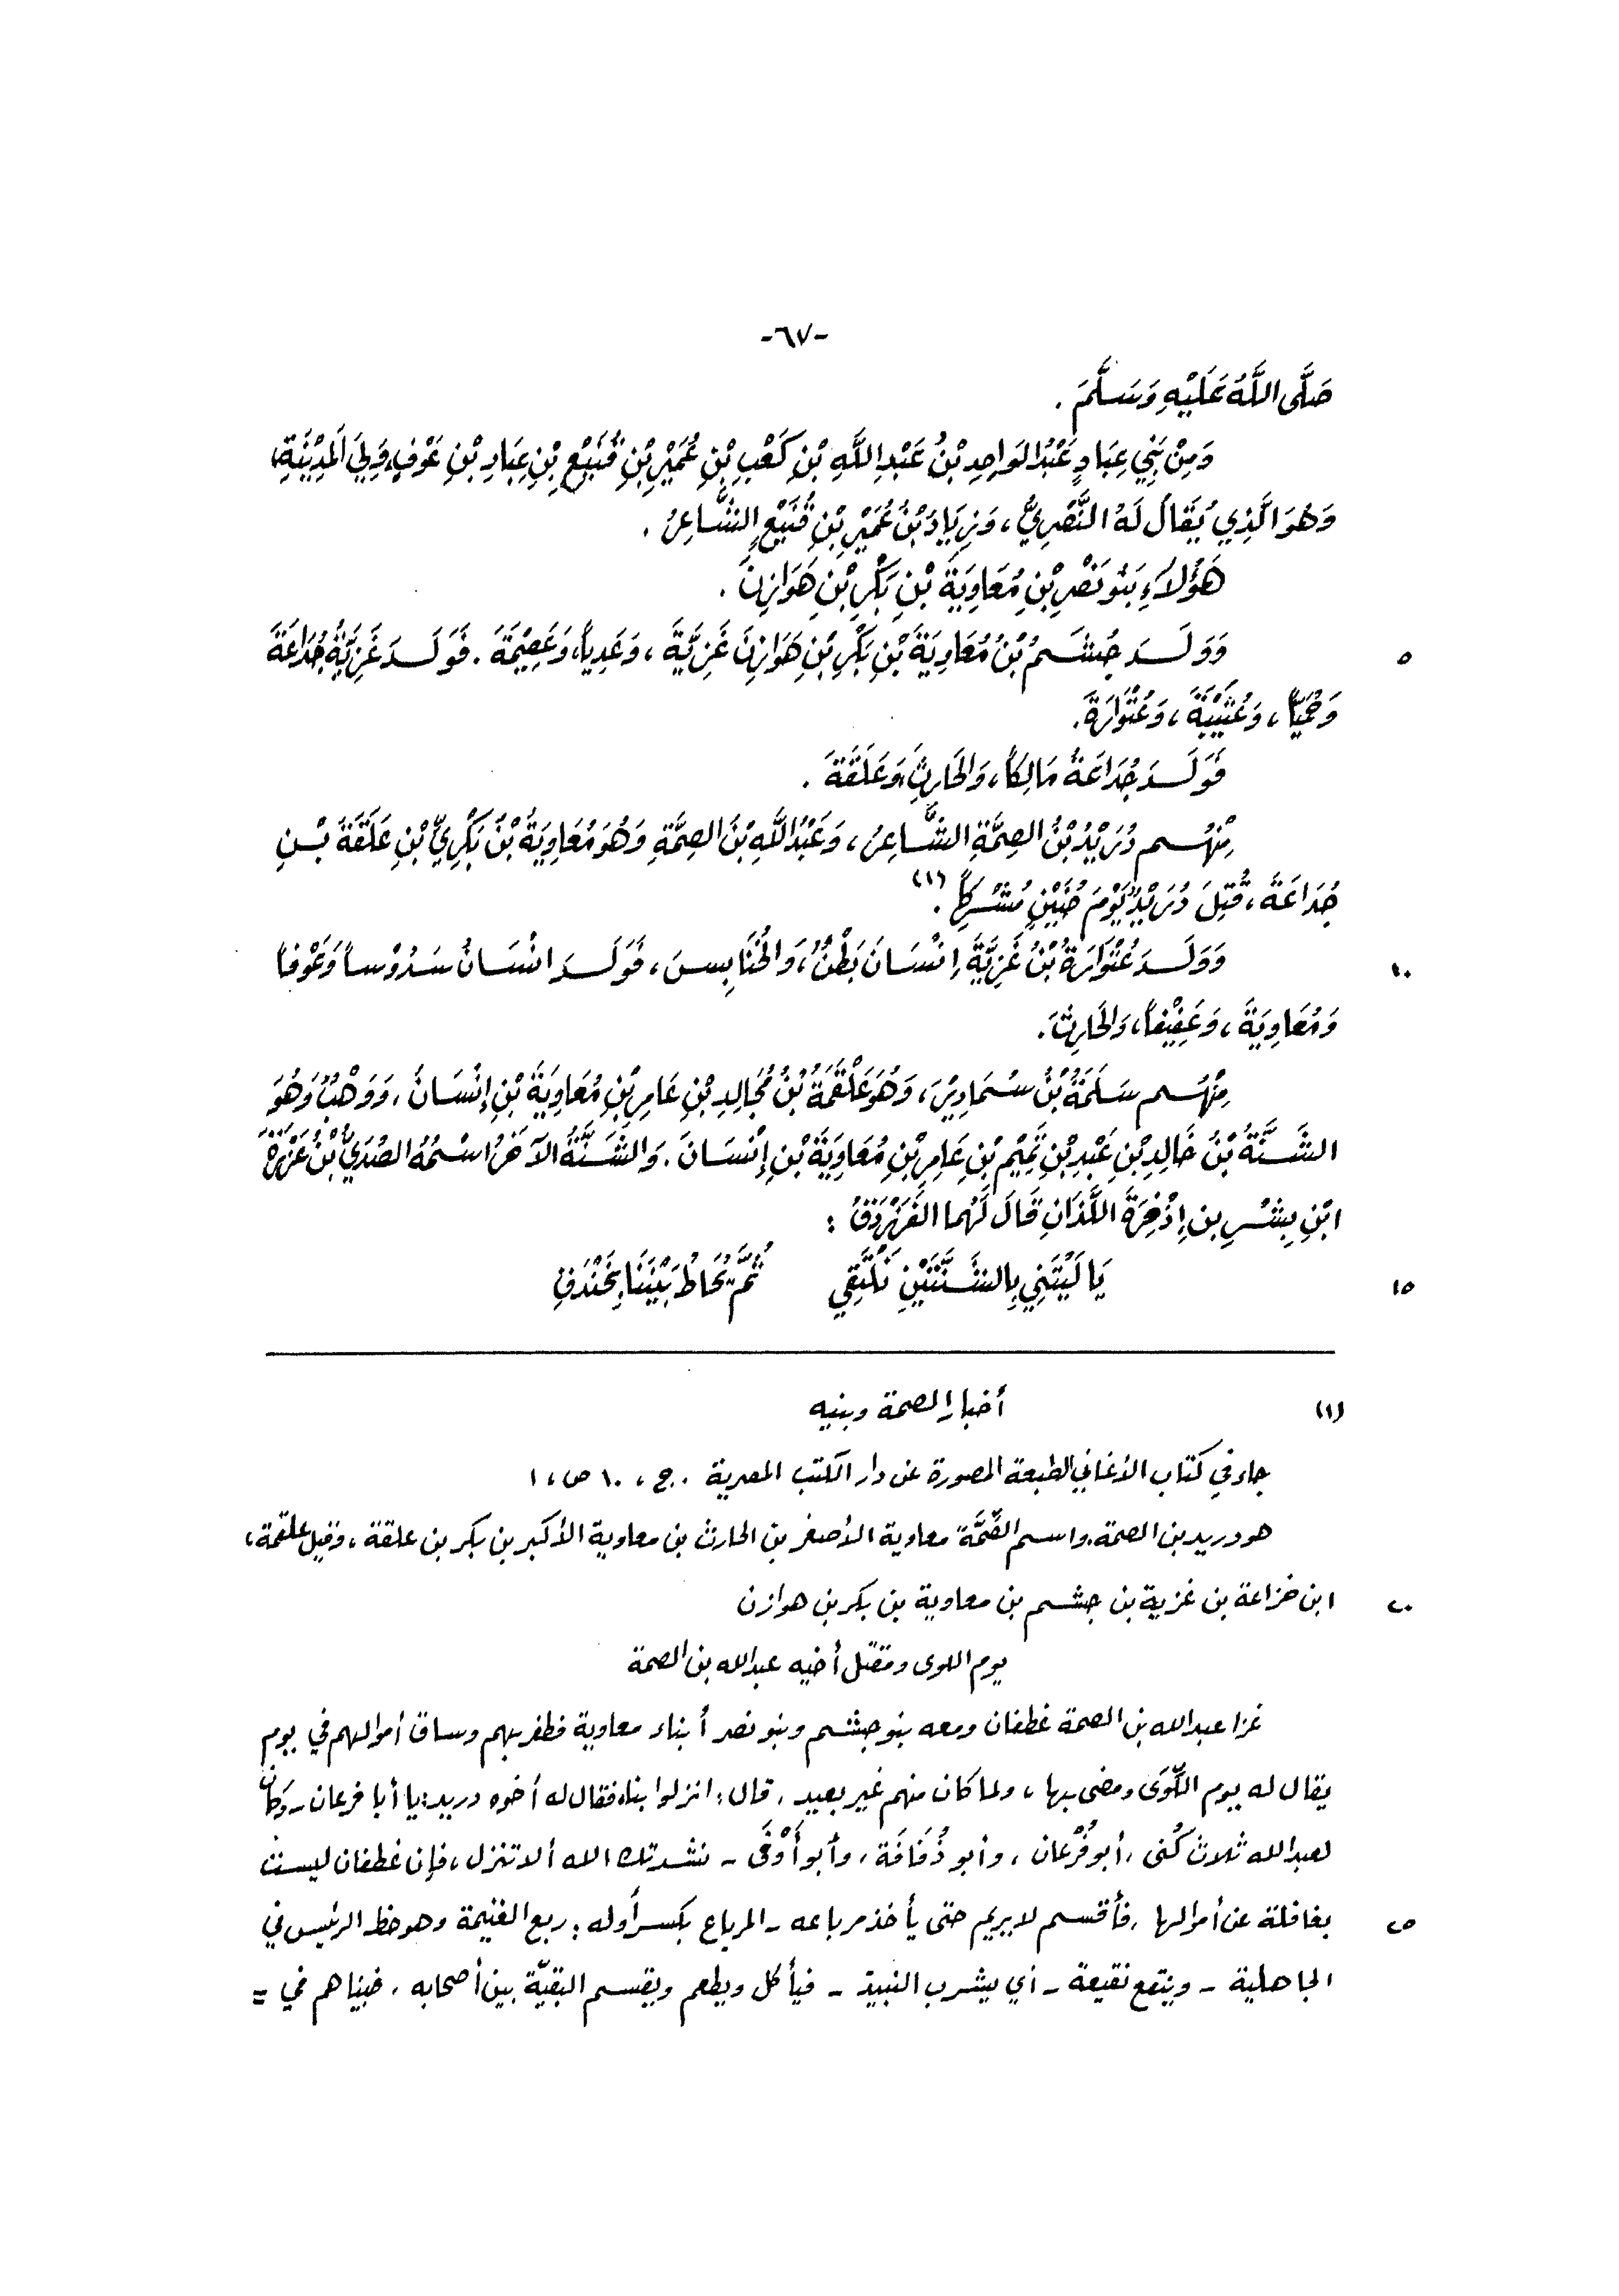 -٦٧-
صَلَّى اللَّهُ عَلَيْهِ وَسَلَّمَ .
وَمِنْ بَنِي عِبَادٍ عَبْدُ الوَاحِدِ بْنُ عَبْدِ اللَّهِ بْنِ كَعْبِ بْنِ عُمَيْرِ بْنِ قُنَيْعِ بْنِ عِبَادِ بْنِ عَوْفٍ، وَلِيَ المَدِيْنَةِ،
وَهُوَ الَّذِي يُقَالُ لَهُ النَّصْرِيُّ ، وَزِيَادُ بْنُ عُمَيْرِ بْنِ قُنَيْعٍ الشَّاعِرُ .
هَؤُلاَءِ بَنُو نَصْرِ بْنِ مُعَاوِيَةَ بْنِ بَكْرِ بْنِ هَوَازِنَ .
٥ وَوَلَدَ جُشَمُ بْنُ مُعَاوِيَةَ بْنِ بَكْرِ بْنِ هَوَازِنَ غَزِيَّةَ ، وَعَدِيَّاً، وَعَصِيْمَةَ . فَوَلَدَ غَزِيَّةُ جُدَاعَةَ
وَحُمَيَّاً ، وَعُتَيْبَةَ ، وَعُتْوَارَةَ .
فَوَلَدَ جُدَاعَةُ مَالِكَاً ، وَالحَارِثَ، وَعَلَقَةَ .
مِنْهُم دُرَيْدُ بْنُ الصِمَّةِ الشَّاعِرُ ، وَعَبْدُ اللَّهِ بْنُ الصِمَّةِ وَهُوَ مُعَاوِيَةُ بْنُ بَكْرِيِّ بْنِ عَلَقَةَ بْنِ
جُدَاعَةَ ، قُتِلَ دُرَيْدٌ يَوْمَ حُنَيْنٍ مُشْرِكَاً . (١)
١٠ وَوَلَدَ عُتْوَارَةُ بْنُ غَزِيَّةَ إِنْسَانَ بَطْنٌ، وَالخَنَابِسَ ، فَوَلَدَ انْسَانُ سَدُوْسَاً وَعَوْفَاً
وَمُعَاوِيَةَ ، وَعَفِيْفَاً، وَالحَارِثَ .
مِنْهُم سَلَمَةُ بْنُ سُمَادِيْرَ ، وَهُوَ عَلْقَمَةُ بْنُ مُجَالِدِ بْنِ عَامِرِ بْنِ مُعَاوِيَةَ بْنِ إِنْسَانَ . وَوَهْبٌ وَهُوَ
الشَّنَّةُ بْنُ خَالِدِ بْنِ عَبْدِ بْنِ تَمِيْمِ بْنِ عَامِرِ بْنِ مُعَاوِيَةَ بْنِ إِنْسَانَ . وَالشَّنَّةُ الآخَرُ اسْمُهُ الصُدَيُّ بْنُ عَزْرَةَ
ابْنِ بِشْرِ بنِ إِذْخِرَةَ اللَّذَانِ قَالَ لَهُمَا الفَرَزْدَقُ :
١٥ يَا لَيْتَنِي بِالشَّنَّتَيْنِ نَلْتَقِي ثُمَّ يُحَاطُ بَيْنَنَا بِخَنْدَقِ
(١) أخبار الصمة وبنيه
جاء في كتاب الأغاني الطبعة المصورة عن دار الكتب المصرية . ج ، ١٠ ص ، ١
هو دريد بن الصمة. واسم الصِّمَّة معاوية الأصغر بن الحارث بن معاوية الأكبر بن بكر بن علقة ، وقيل علقمة،
٢٠ ابن خزاعة بن غزية بن جشم بن معاوية بن بكر بن هوازن
يوم اللوى ومقتل أخيه عبدالله بن الصمة
غزا عبدالله بن الصمة غطفان ومعه بنو جشم وبنو نصر أبناء معاوية فظفر بهم وساق أموالهم في يوم
يقال له يوم اللِّوَى ومضى بها ، ولما كان منهم غير بعيد . قال : انزلوا بنا، فقال له أخوه دريد: يا أبا فرعان - وكان
لعبدالله ثلاث كُنى ، أبو فُرْعان ، وأبو ذُفَافَة ، وأبو أَوْفَى - نشدتك الله ألا تنزل ، فإن غطفان ليست
٢٥ بغافلة عن أموالها ، فأقسم لا يريم حتى يأخذ مرباعه - المرباع بكسر أوله : ربع الغنيمة وهو حظ الرئيس في
الجاهلية - وينقع نقيعة - أي يشرب النبيذ - فيأكل ويطعم ويقسم البقيّة بين أصحابه ، فبينا هم في =